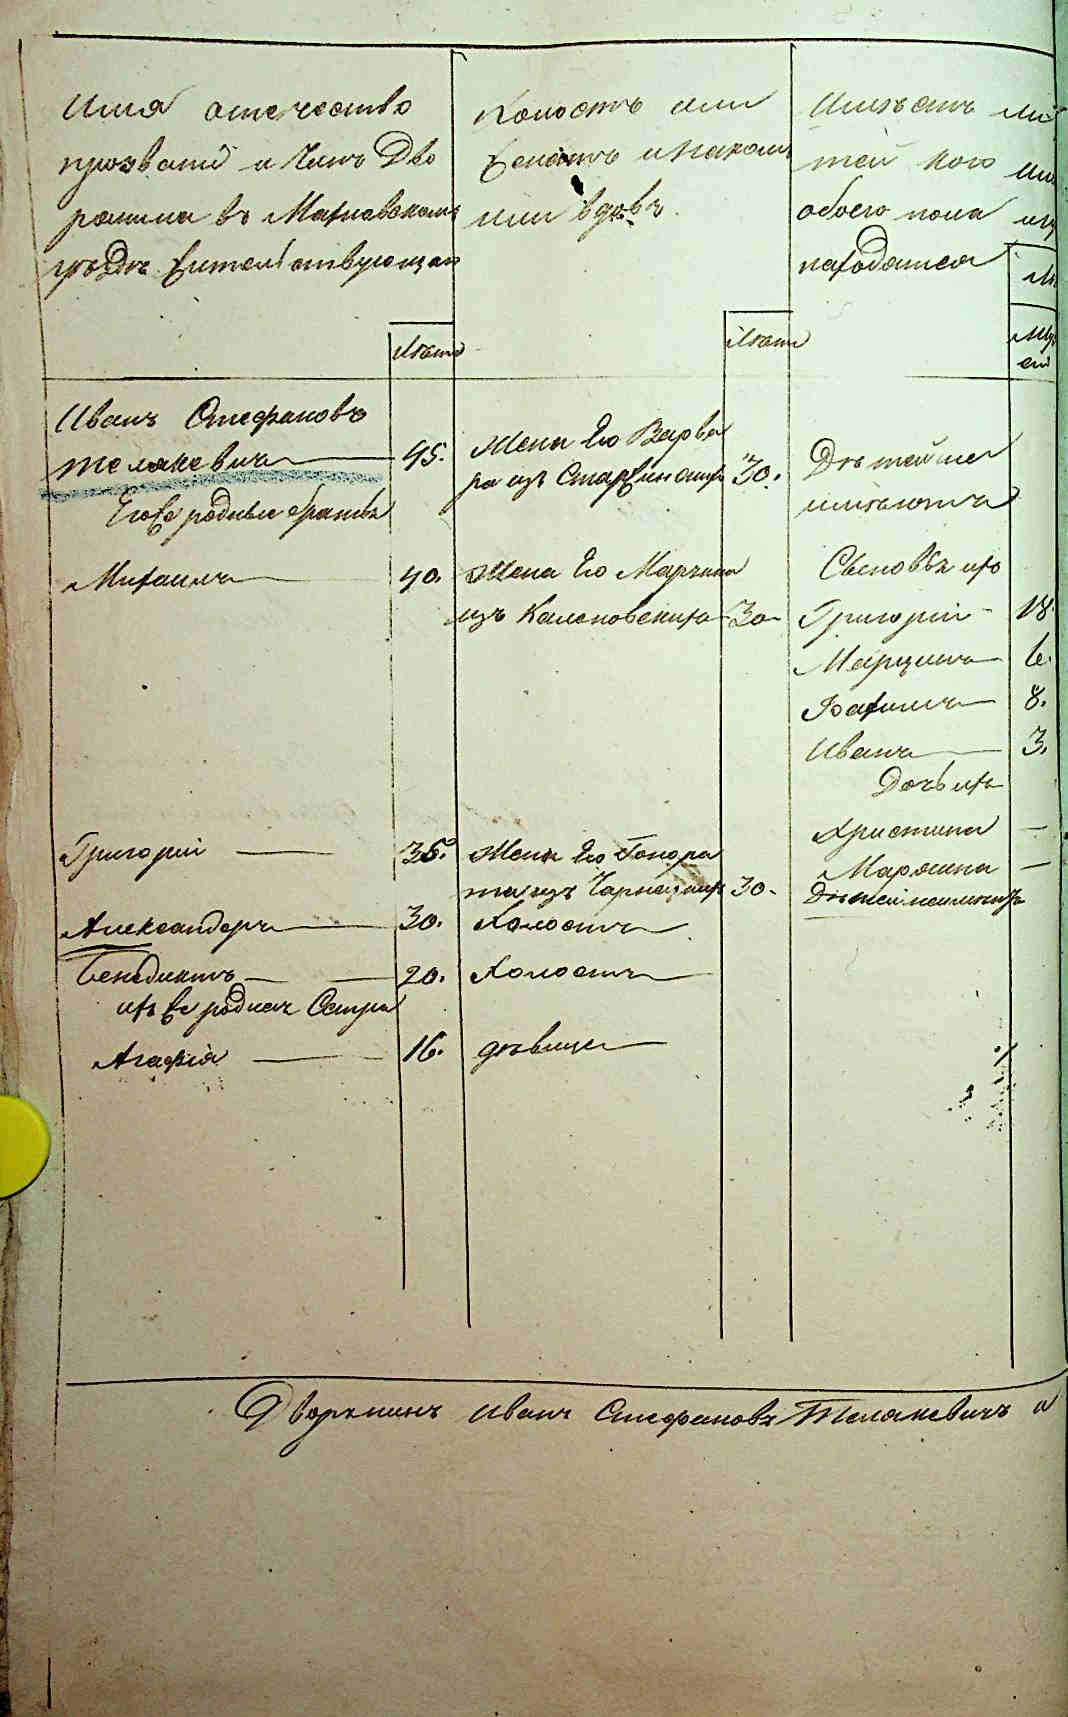 Имя отечество
прозваніе и Чинъ Дво
рянина въ Махновскомъ
уѣздѣ жительствующаго
Лѣта
Холостъ или
женатъ и на комъ
или вдовъ.
Лѣта
Имѣетъ ли
тей кого
обоего пола
находятся
Иванъ Стефановъ
Телякевичъ 45.
Жена Его Варва
ра изъ 30.
Дѣтей не
имѣютъ
Его же родные братья
Михаилъ 40.
Жена Его Марчина
изъ Калиновскихъ 30
Сыновья ихъ
Григорій 18
Марцинъ 6.
Іоахимъ 8.
Иванъ 3.
Дочь ихъ
Христина
Марянна
Григорій 35.
Жена Его Гонора
та изъ 30.
Дѣтей неимеютъ
Александеръ 30. Холостъ
Бенедиктъ 20. Холостъ
ихъ же родная Сестра
Агафія 16. дѣвица
Дворянинъ Иванъ Стефановъ Телякевичъ